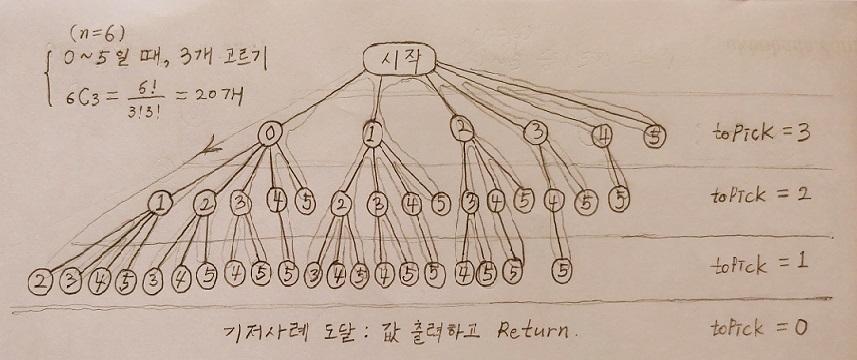 (n=6)
0~5일 때, 3개 고르기
6C3 = 6!/3!3! = 20개
시작
0 1 2 3 4 5 toPick = 3
1 2 3 4 5 2 3 4 5 3 4 5 4 5 5 toPick = 2
2 3 4 5 3 4 5 4 5 5 3 4 5 4 5 5 4 5 5 5 toPick = 1
기저사례 도달 : 값 출력하고 Return. toPick = 0